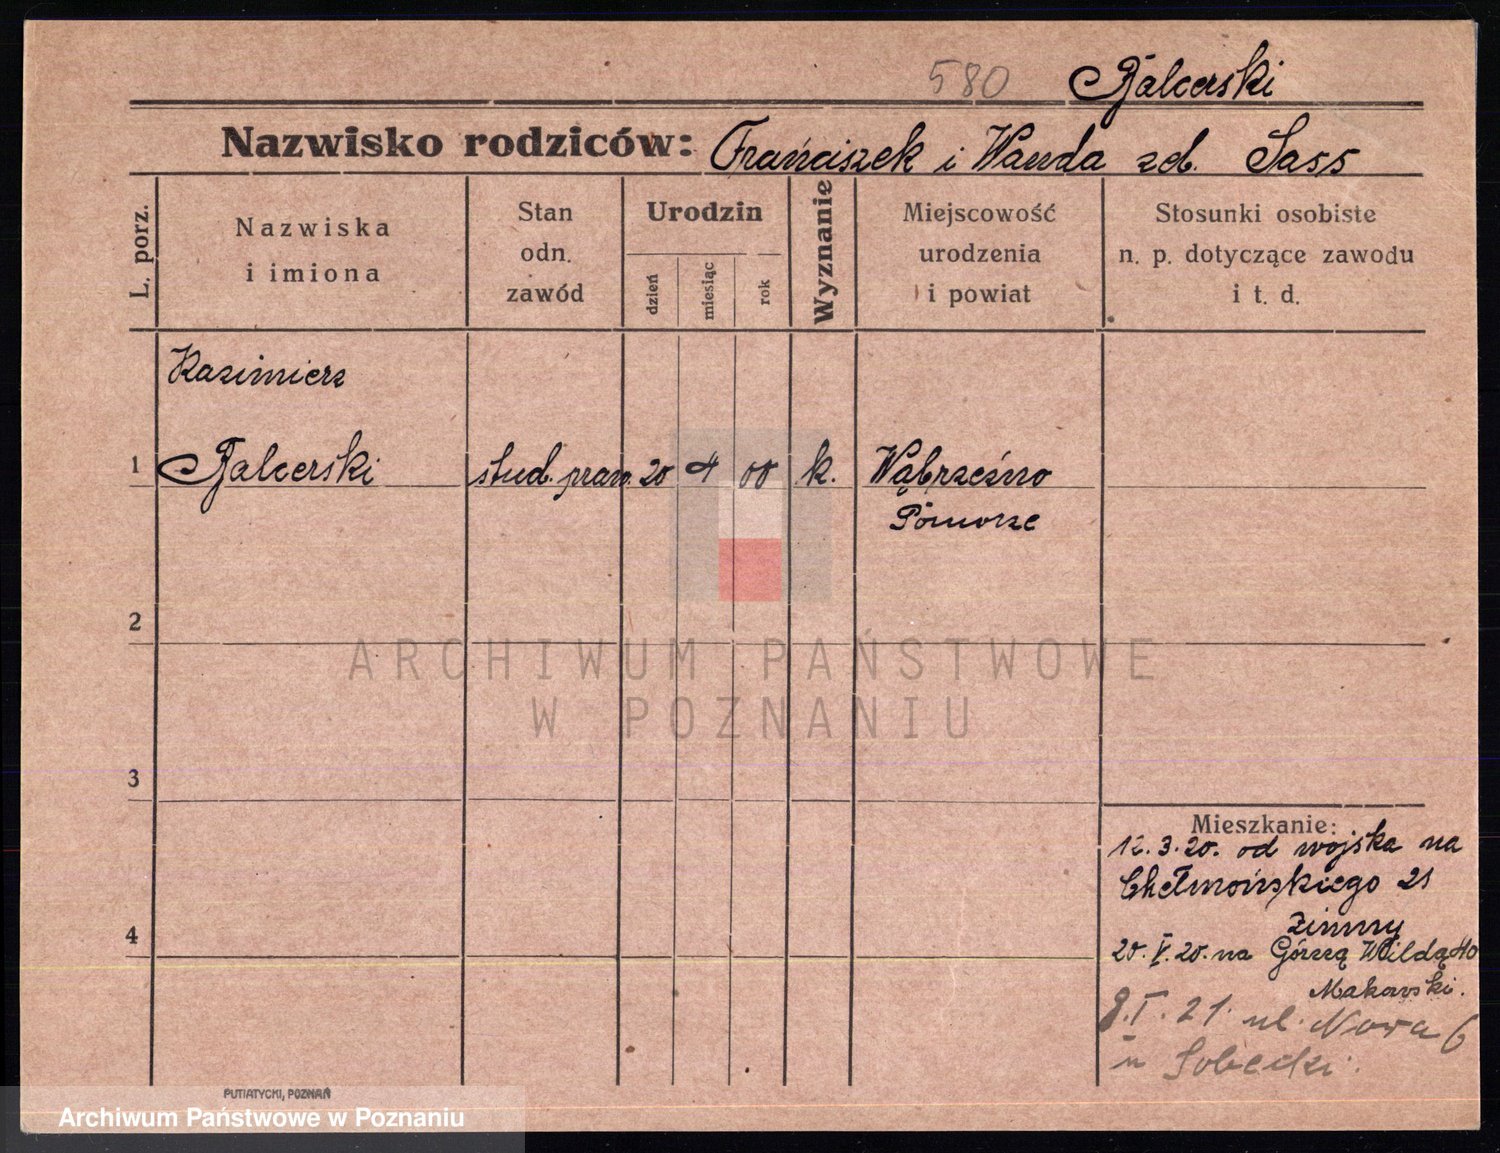 580 Balcerski
Nazwisko rodziców: Frańciszek i Wanda zd. Sass
L. porz.
Nazwiska
i imiona
Stan
odn.
zawód
Urodzin
dzień
miesiąc
rok
Wyznanie
Miejscowość
urodzenia
i powiat
Stosunki osobiste
n. p. dotyczące zawodu
i t. d.
Kazimierz
1 Balcerski stud. praw. 20 4 00 k. Wąbrzeźno
Pomorze
2
ARCHIWUM PAŃSTWOWE
W POZNANIU
3
Mieszkanie:
12.3.20. od wojska na
Chełmońskiego 21
Zimny
4
20.V.20. na Górną Wildę 40
Makowski.
8.I.21. ul. Nowa 6
u Sobecki.
PUTIATYCKI, POZNAŃ
Archiwum Państwowe w Poznaniu